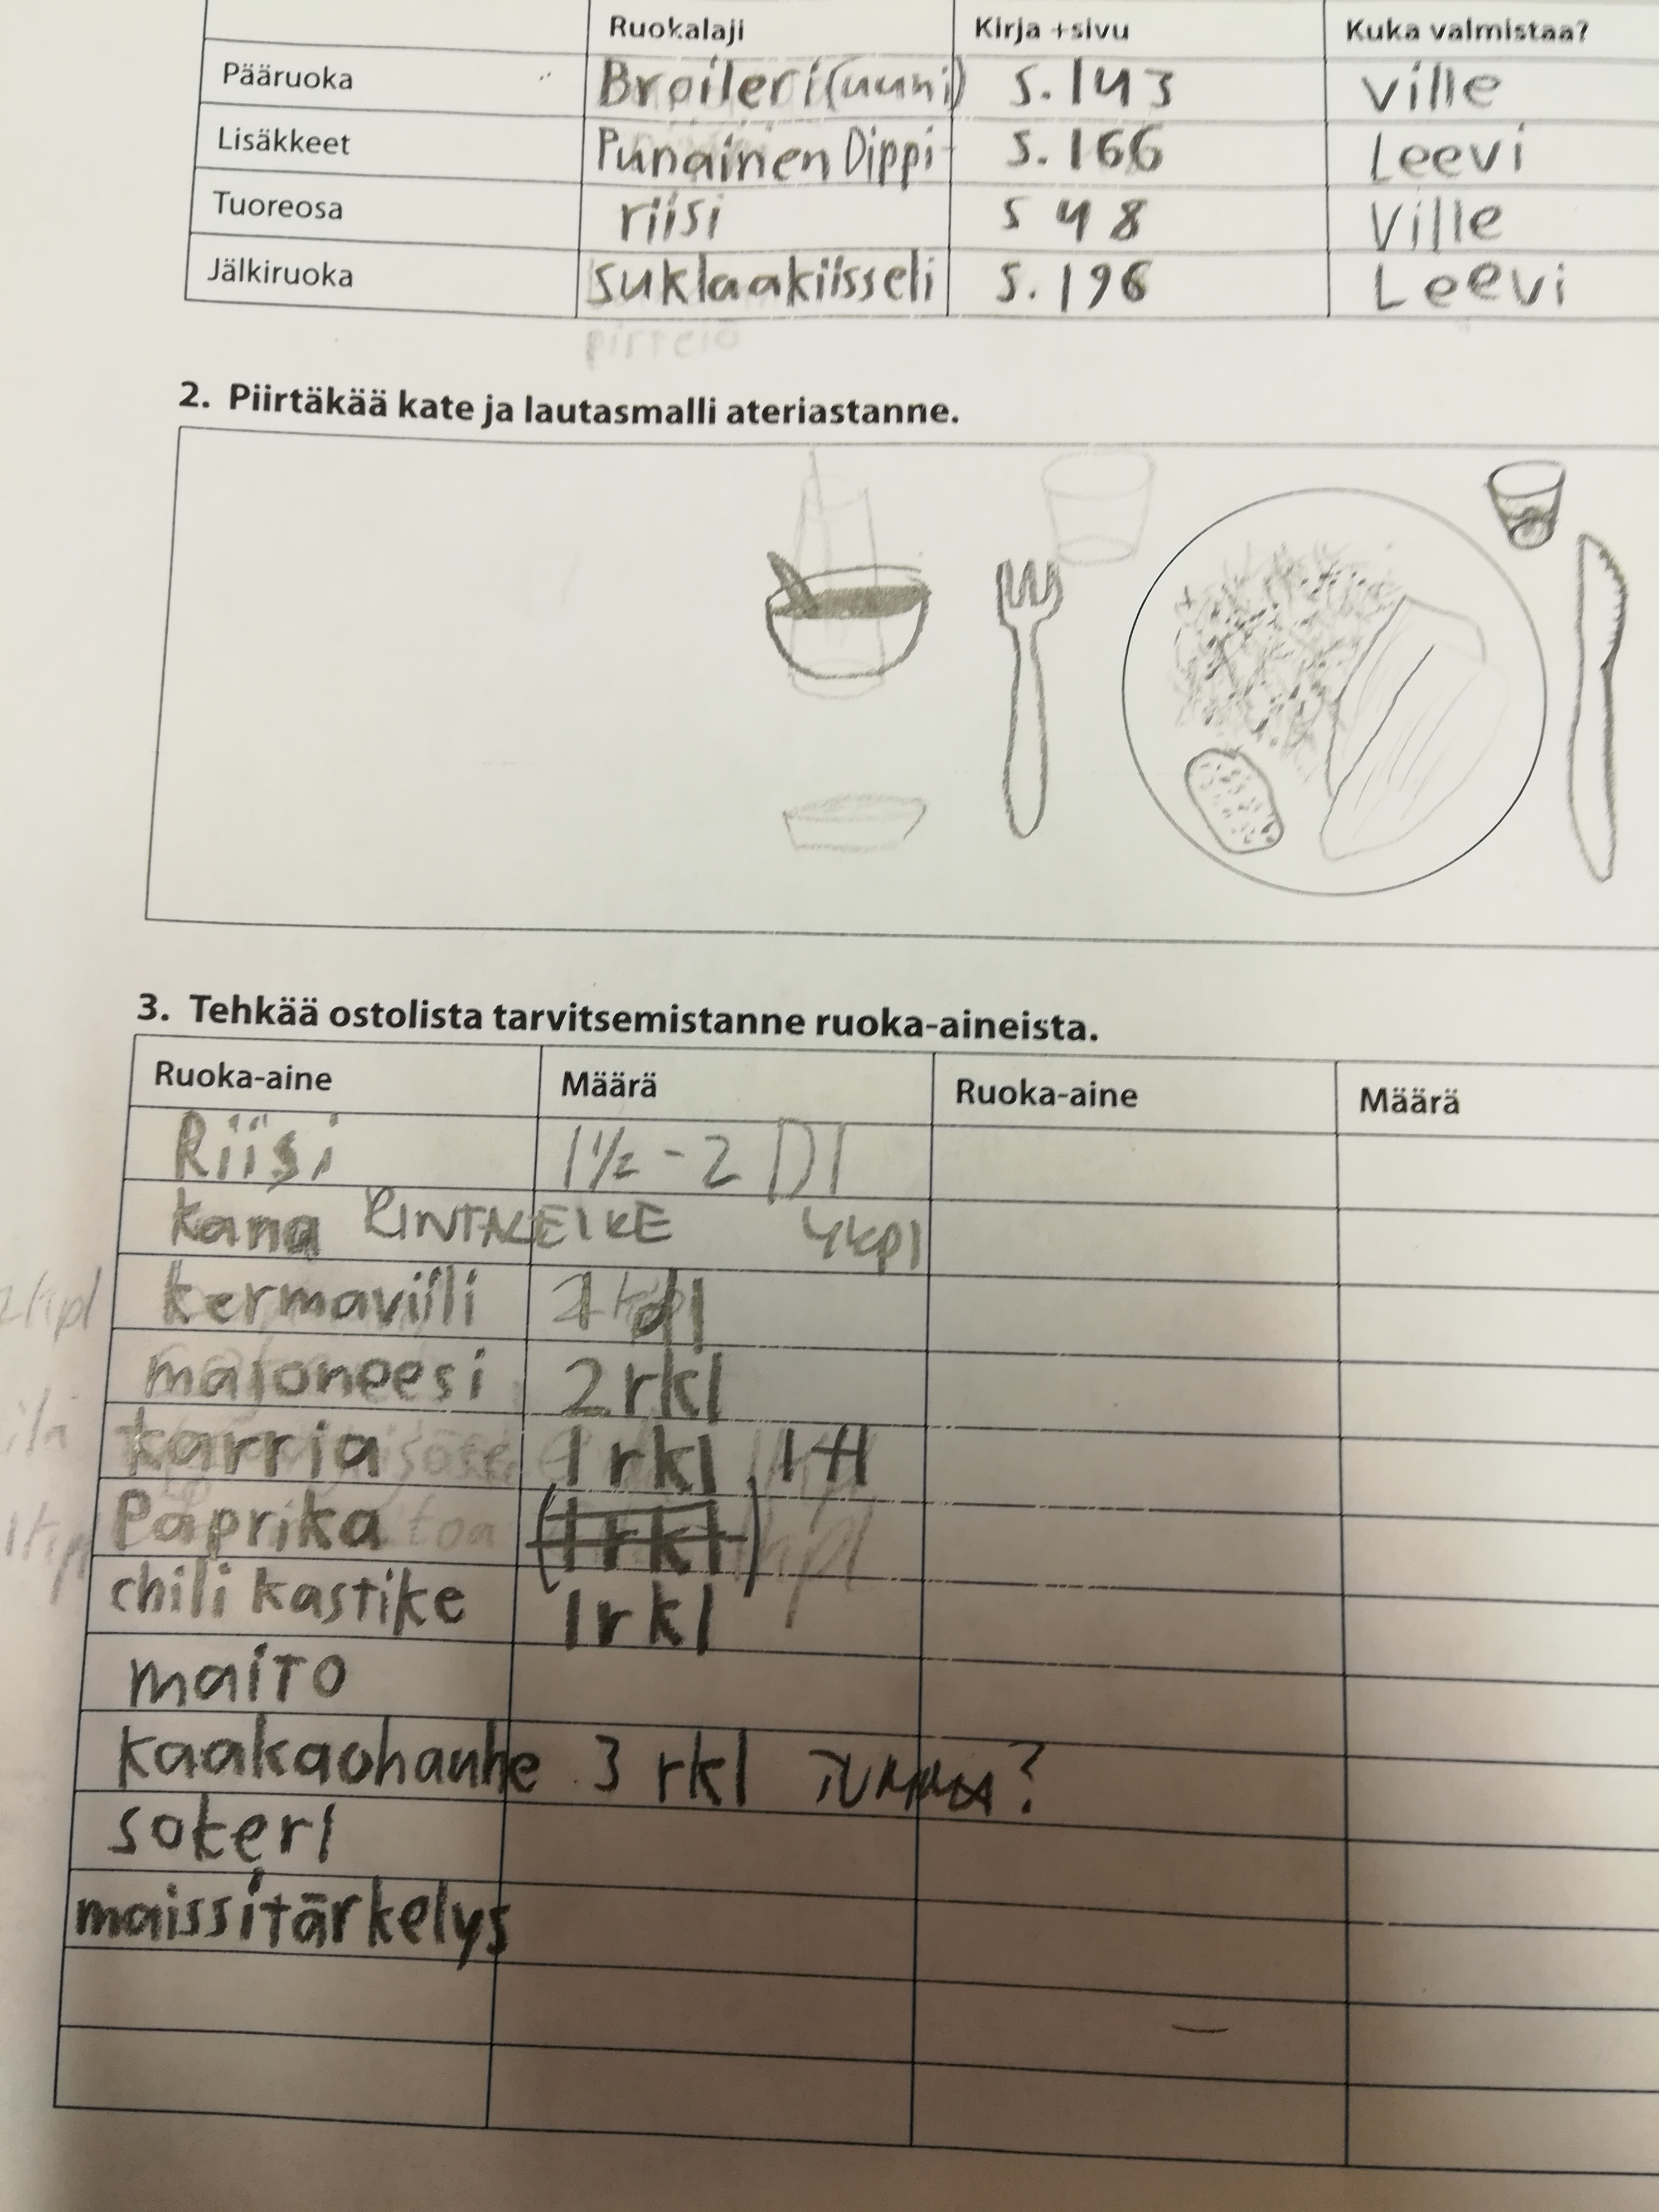 Ruokalaji Kirja +sivu Kuka valmistaa?
Pääruoka Broileri(uuni) s. 143 Ville
Lisäkkeet Punainen Dippi s. 166 Leevi
Tuoreosa riisi s 48 Ville
Jälkiruoka suklaakiisseli s. 196 Leevi
2. Piirtäkää kate ja lautasmalli ateriastanne.
3. Tehkää ostolista tarvitsemistanne ruoka-aineista.
Ruoka-aine Määrä Ruoka-aine Määrä
Riisi 1½ - 2 Dl
kana RINTALEIKE 4kpl
2kpl kermaviili 1 dl
majoneesi 2 rkl
karria 1 rkl 1 tl
1kpl Paprika (1 rkl)
chili kastike 1 rkl
maito
kaakaohauhe 3 rkl TUMMA?
sokeri
maissitärkelys